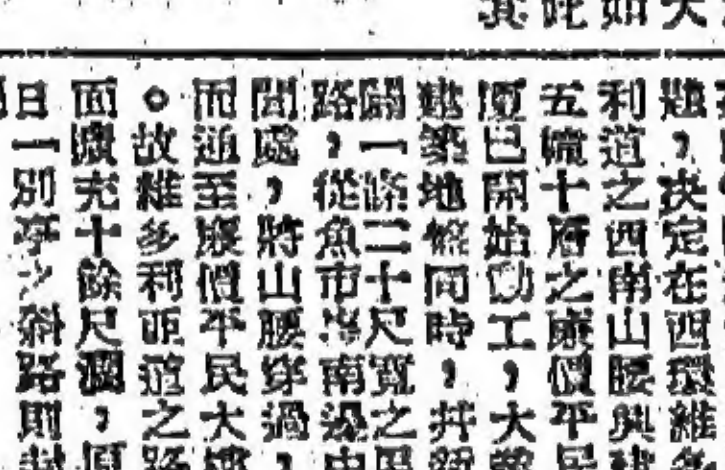 大
如
此
其
題，決定在西環維多
利道之西南山腰興建
五幢十層之廉價平民
廈已開始動工，大
建築地盤同時，并
闢一條二十尺寬之
路，從魚市場南邊
間處，將山腰穿過，
而通至廉價平民大樓
。故維多利亞道之路
面擴充十餘尺濶，原
日一別亭之斜路則